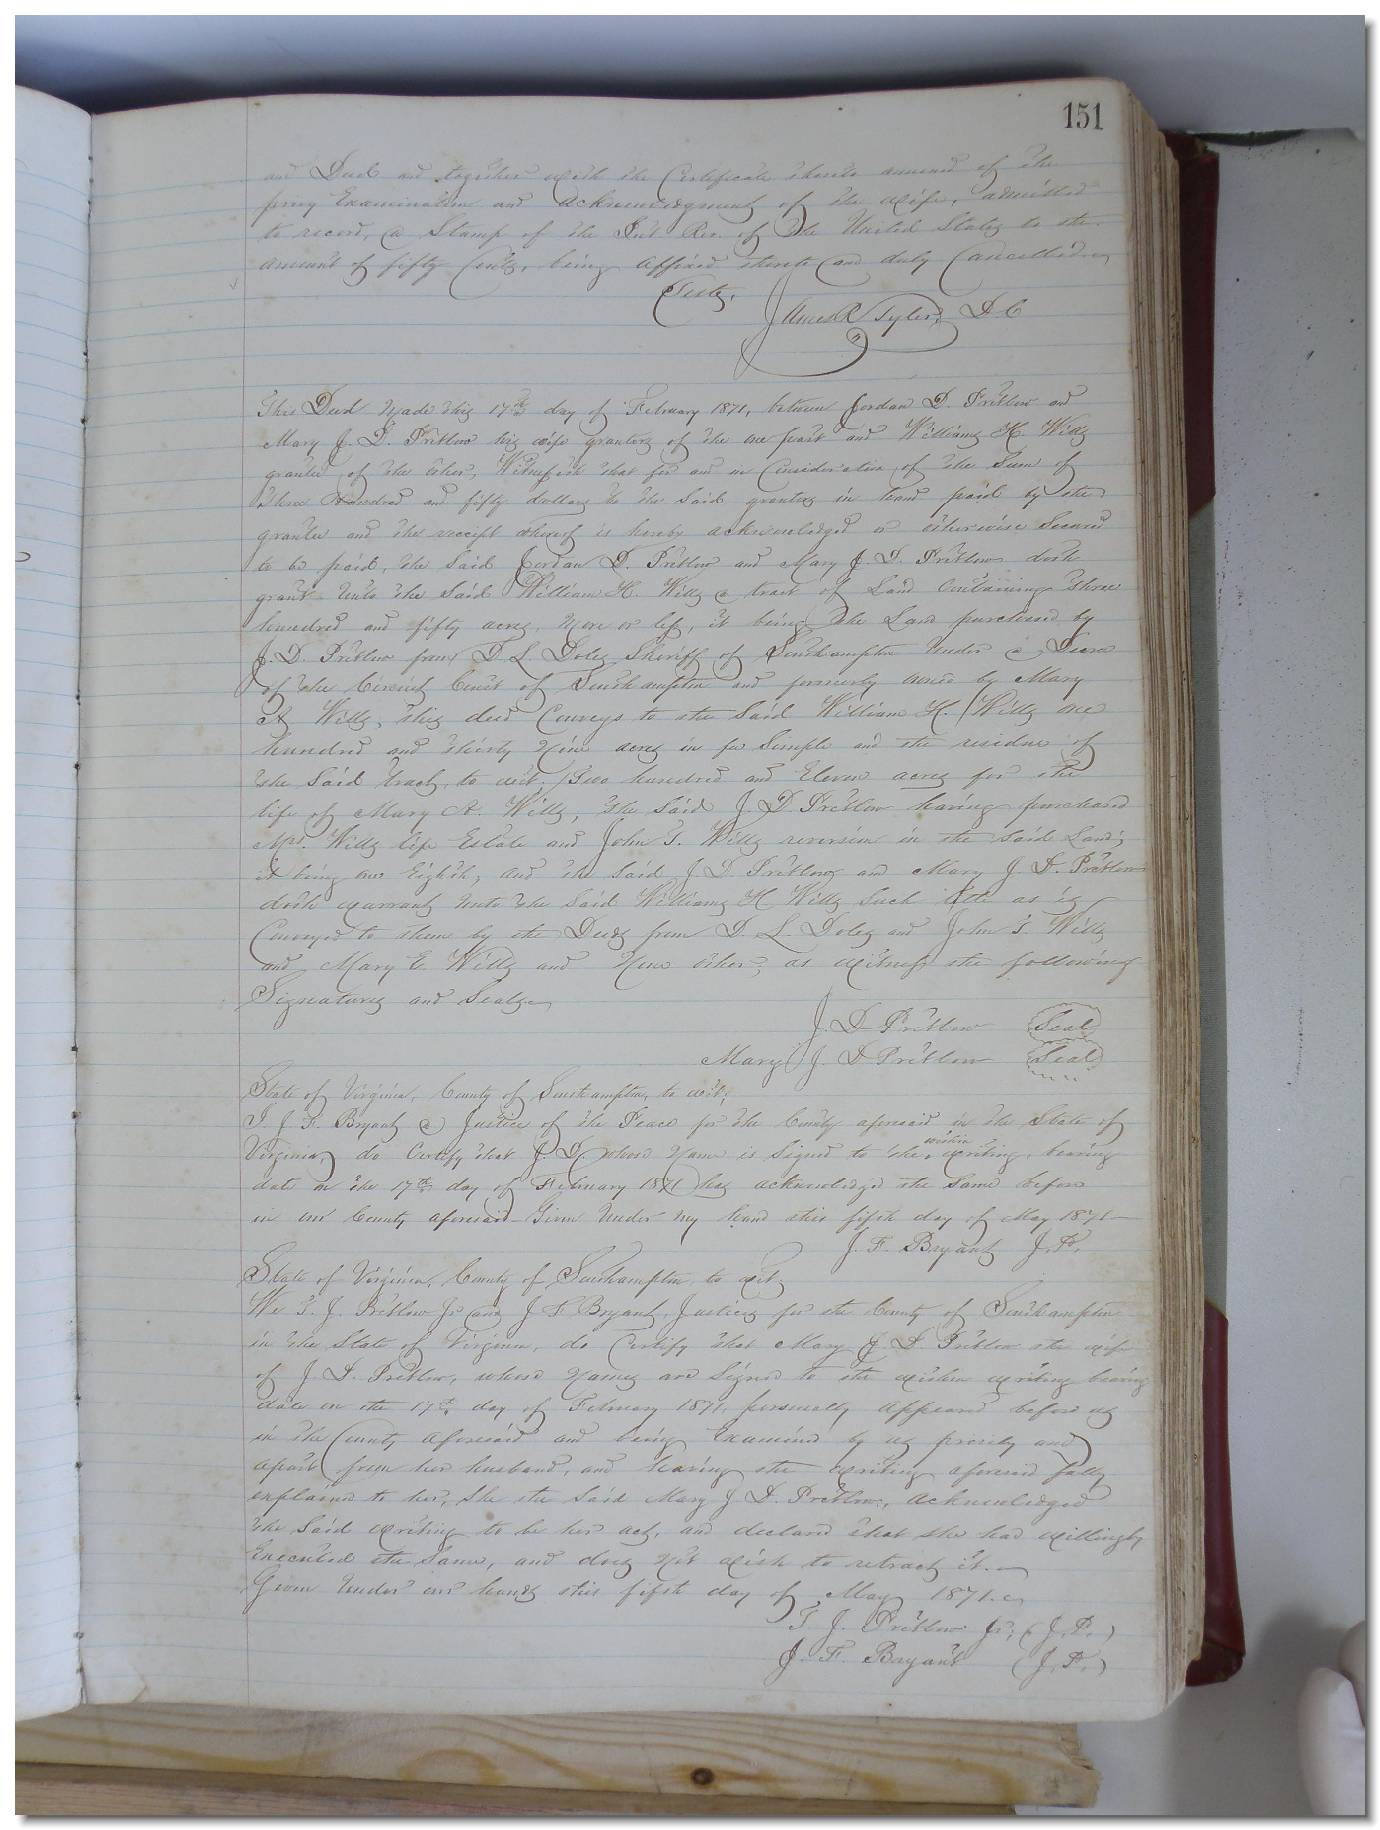 151
and Deed and together with the Certificate thereto annexed of the
privy Examination and acknowledgment of the wife, admitted
to record, a Stamp of the Int Rev. of the United States to the
amount of fifty Cents, being affixed thereto and duly Cancelled.
Teste,
James R Tyler, D.C
This Deed Made this 17th day of February 1871, between Jordan D. Pretlow and
Mary J. D. Pretlow his wife grantors of the one part and William H. Wills
grantee of the other, Witnesseth that for and in Consideration of the Sum of
Three Hundred and fifty dollars to the Said grantors in hand paid by the
grantee and the receipt whereof is hereby acknowledged or otherwise Secured
to be paid, the Said Jordan D. Pretlow and Mary J. D. Pretlow doth
grant Unto the Said William H. Wills a tract of Land Containing three
hundred and fifty acres, More or less, it being the Land purchased by
J. D. Pretlow from D. L. Doles Sheriff of Southampton Under a Decree
of the Circuit Court of Southampton and formerly owned by Mary
A Wills, this deed Conveys to the Said William H. Wills one
hundred and thirty Nine acres in fee Simple and the residue of
the Said tract, to wit, Two hundred and Eleven acres for the
life of Mary A. Wills, the Said J. D. Pretlow having purchased
Mrs. Wills life Estate and John T. Wills reversion in the Said Land;
it being one Eighth, and the Said J D. Pretlow and Mary J D. Pretlow
doth warrant Unto the Said William H Wills Such title as is
Conveyed to them by the Deeds from D. L. Doles and John T. Wills
and Mary E Wills and None other, as witness the following
Signatures and Seals
J. D Pretlow Seal
Mary J D Pretlow Seal
State of Virginia, County of Southampton, to wit;
I J. F. Bryant a Justice of the Peace for the County aforesaid in the State of
within
Virginia, do Certify that J. D. whose Name is Signed to the writing, bearing
date on the 17th day of February 1871 has acknowledged the Same before
in our County aforesaid Given Under my hand this fifth day of May 1871
J. F. Bryant J.P.
State of Virginia, County of Southampton, to wit,
We T. J. Pretlow Jr and J F Bryant, Justices for the County of Southampton
in the State of Virginia, do Certify that Mary J. D. Pretlow the wife
of J. D. Pretlow, whose Names are Signed to the within writing bearing
date on the 17th, day of February 1871, personally appeared before us
in the County aforesaid and being Examined by us privily and
apart from her husband, and having the writing aforesaid fully
explained to her, She the Said Mary J D. Pretlow, acknowledged
the Said writing to be her act, and declared that she had willingly
Executed the Same, and does Not wish to retract it.
Given Under our hands this fifth day of May 1871.
T J. Pretlow Jr, (J.P.)
J. F. Bryant (J.P.)